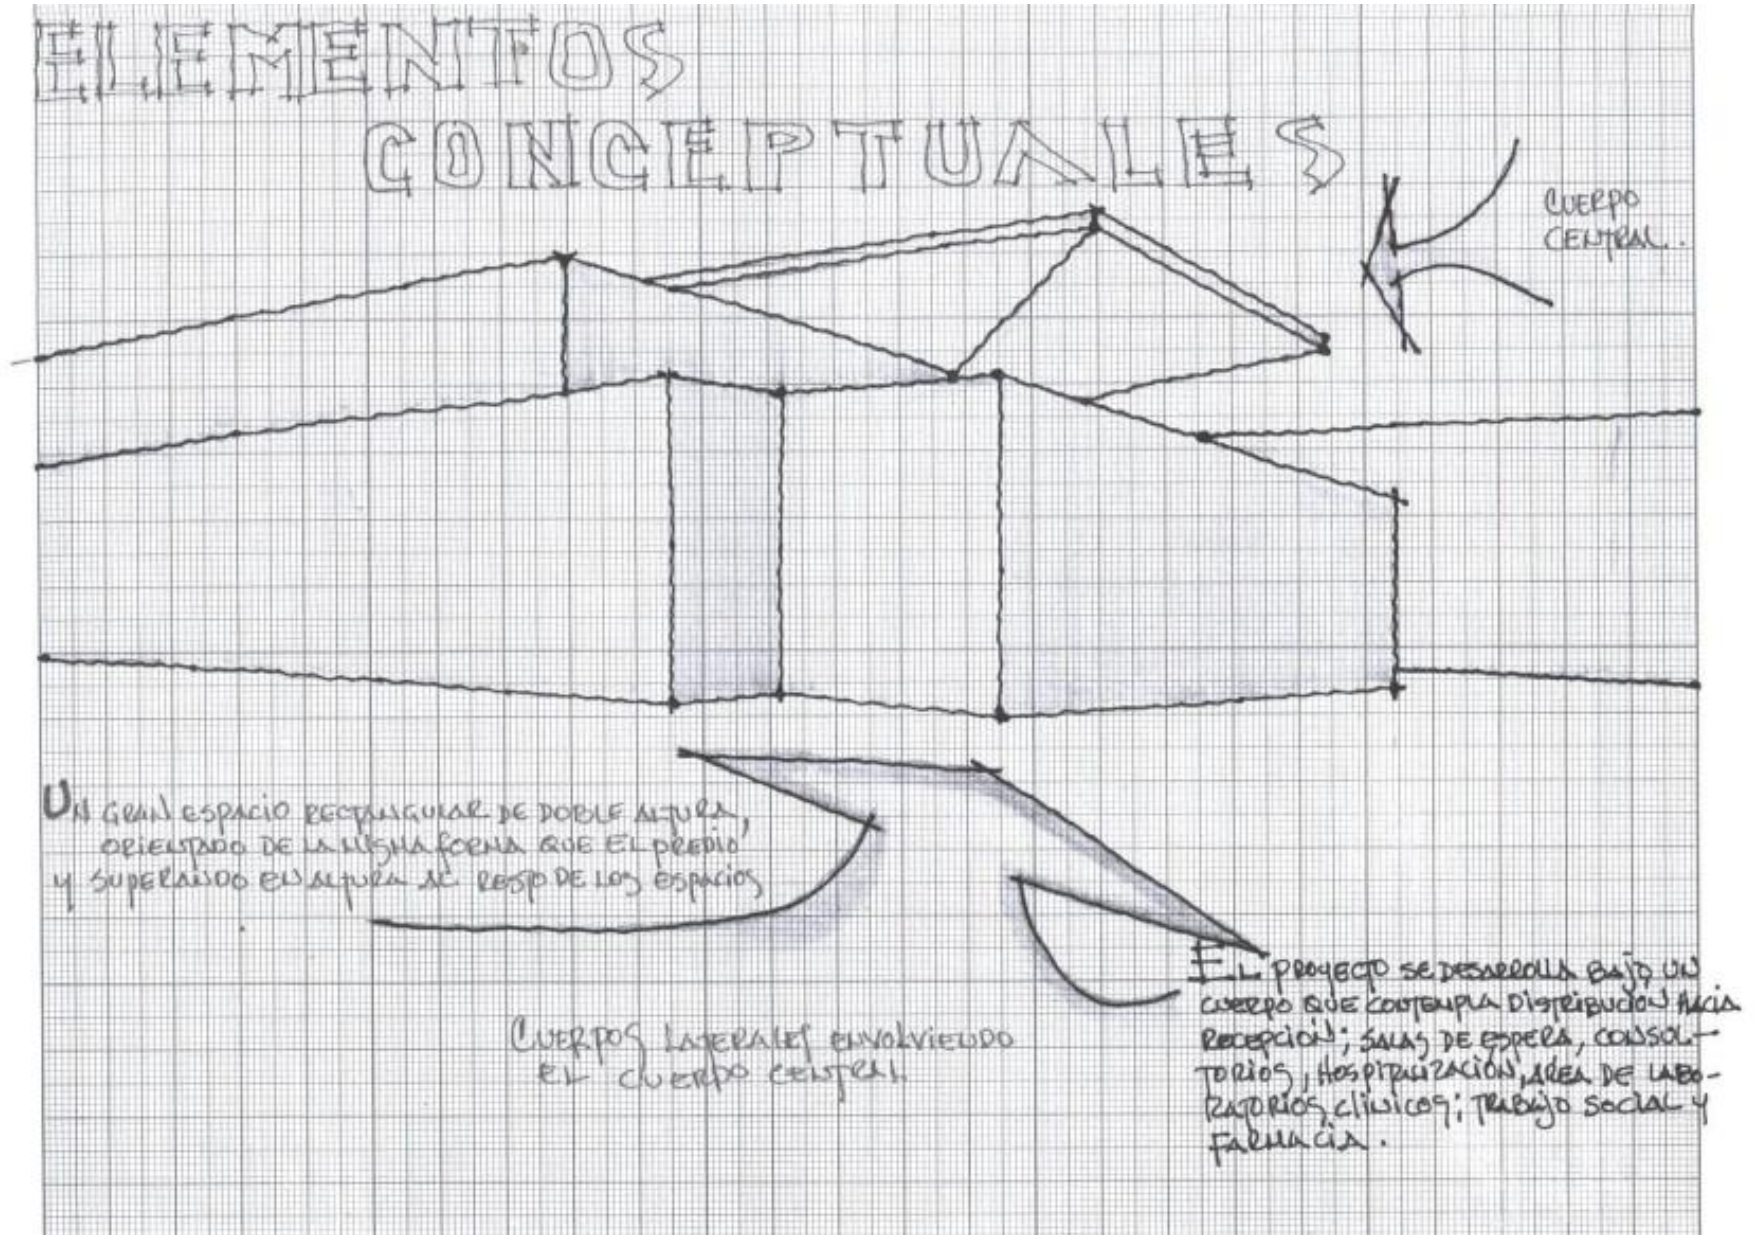 ELEMENTOS
CONCEPTUALES
CUERPO
CENTRAL.
UN GRAN ESPACIO RECTANGULAR DE DOBLE ALTURA,
ORIENTADO DE LA MISMA FORMA QUE EL PREDIO
Y SUPERANDO EN ALTURA AL RESTO DE LOS ESPACIOS
CUERPOS LATERALES ENVOLVIENDO
EL CUERPO CENTRAL
EL PROYECTO SE DESARROLLA BAJO UN
CUERPO QUE CONTEMPLA DISTRIBUCIÓN HACIA
RECEPCIÓN; SALAS DE ESPERA, CONSUL-
TORIOS, HOSPITALIZACIÓN, AREA DE LABO-
RATORIOS CLINICOS; TRABAJO SOCIAL Y
FARMACIA.